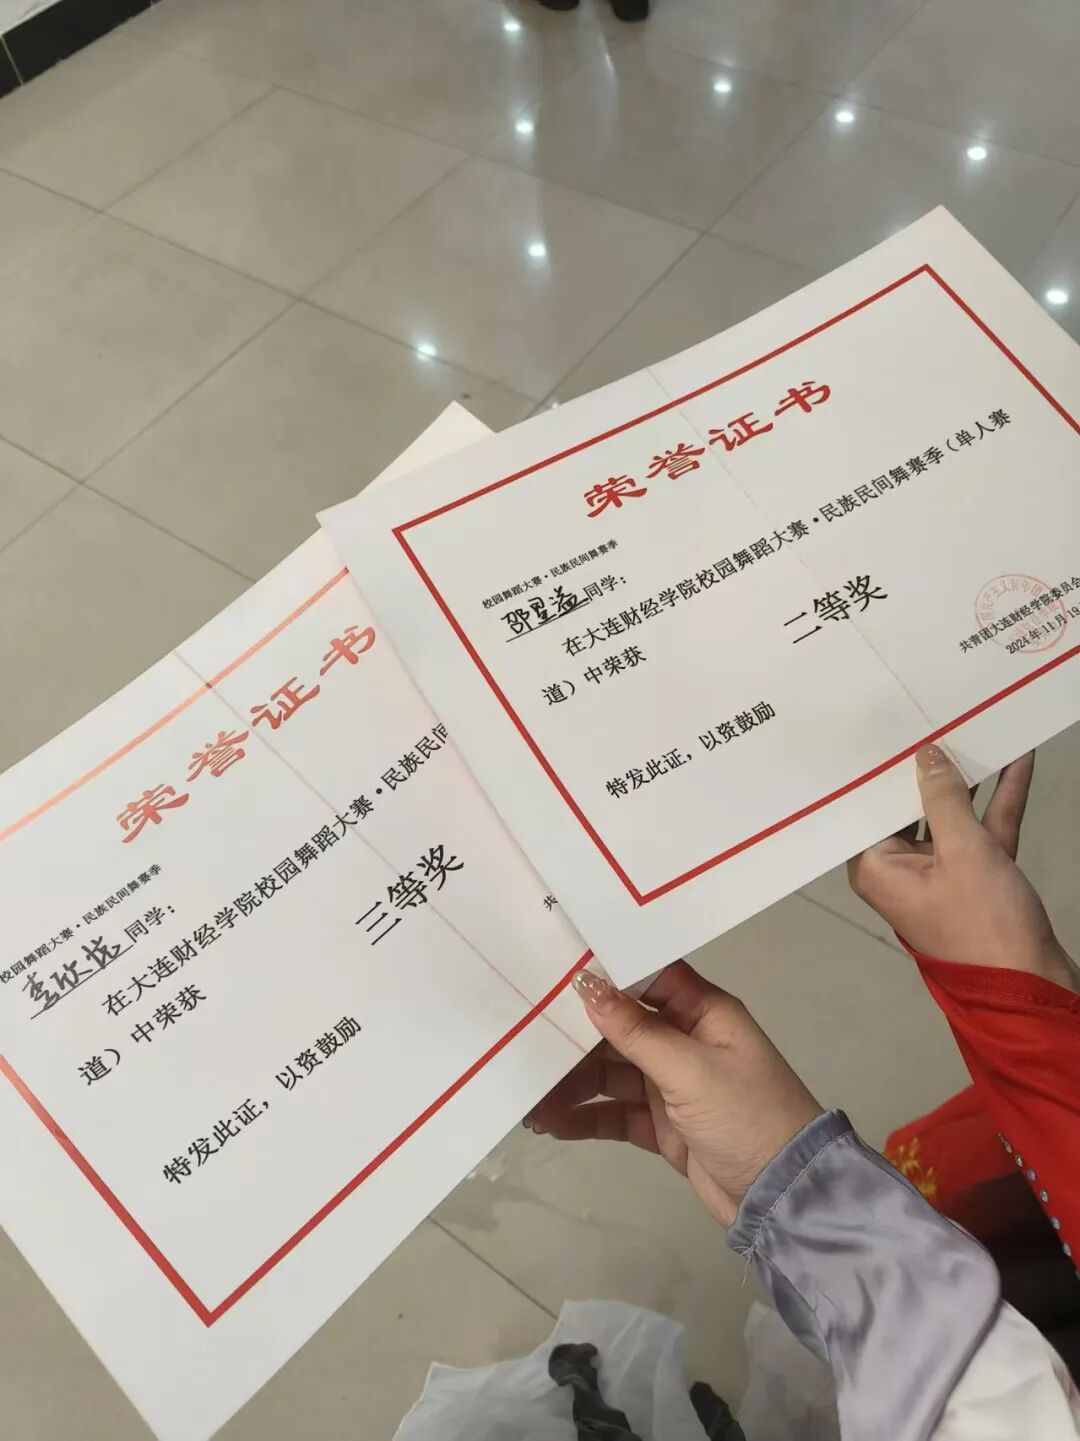 荣誉证书
校园舞蹈大赛·民族民间舞赛季
李欣悦同学：
在大连财经学院校园舞蹈大赛·民族民间
道）中荣获
三等奖
特发此证，以资鼓励
共
荣誉证书
校园舞蹈大赛·民族民间舞赛季
邵星益同学：
在大连财经学院校园舞蹈大赛·民族民间舞赛季（单人赛
道）中荣获
二等奖
特发此证，以资鼓励
共青团大连财经学院委员会
2024年11月19